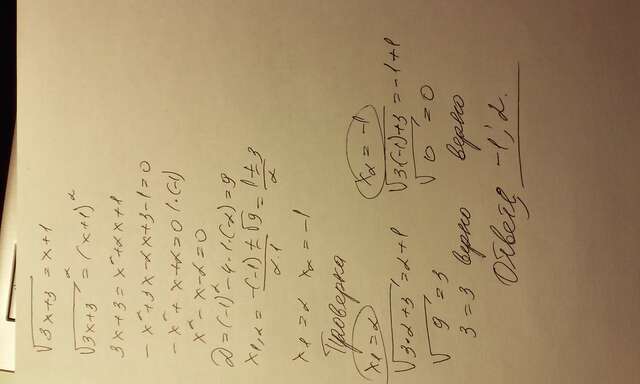 √3x+3 = x+1
√3x+3² = (x+1)²
3x+3 = x²+2x+1
-x²+3x-2x+3-1=0
-x²+x+2=0 |·(-1)
x²-x-2=0
D=(-1)²-4·1·(-2)=9
x1,2 = -(-1)±√9 / 2·1 = 1±3 / 2
x1=2 x2=-1
Проверка
x1=2
√3·2+3 = 2+1
√9 = 3
3=3 верно
x2=-1
√3(-1)+3 = -1+1
√0 = 0
верно
Ответ: -1; 2.